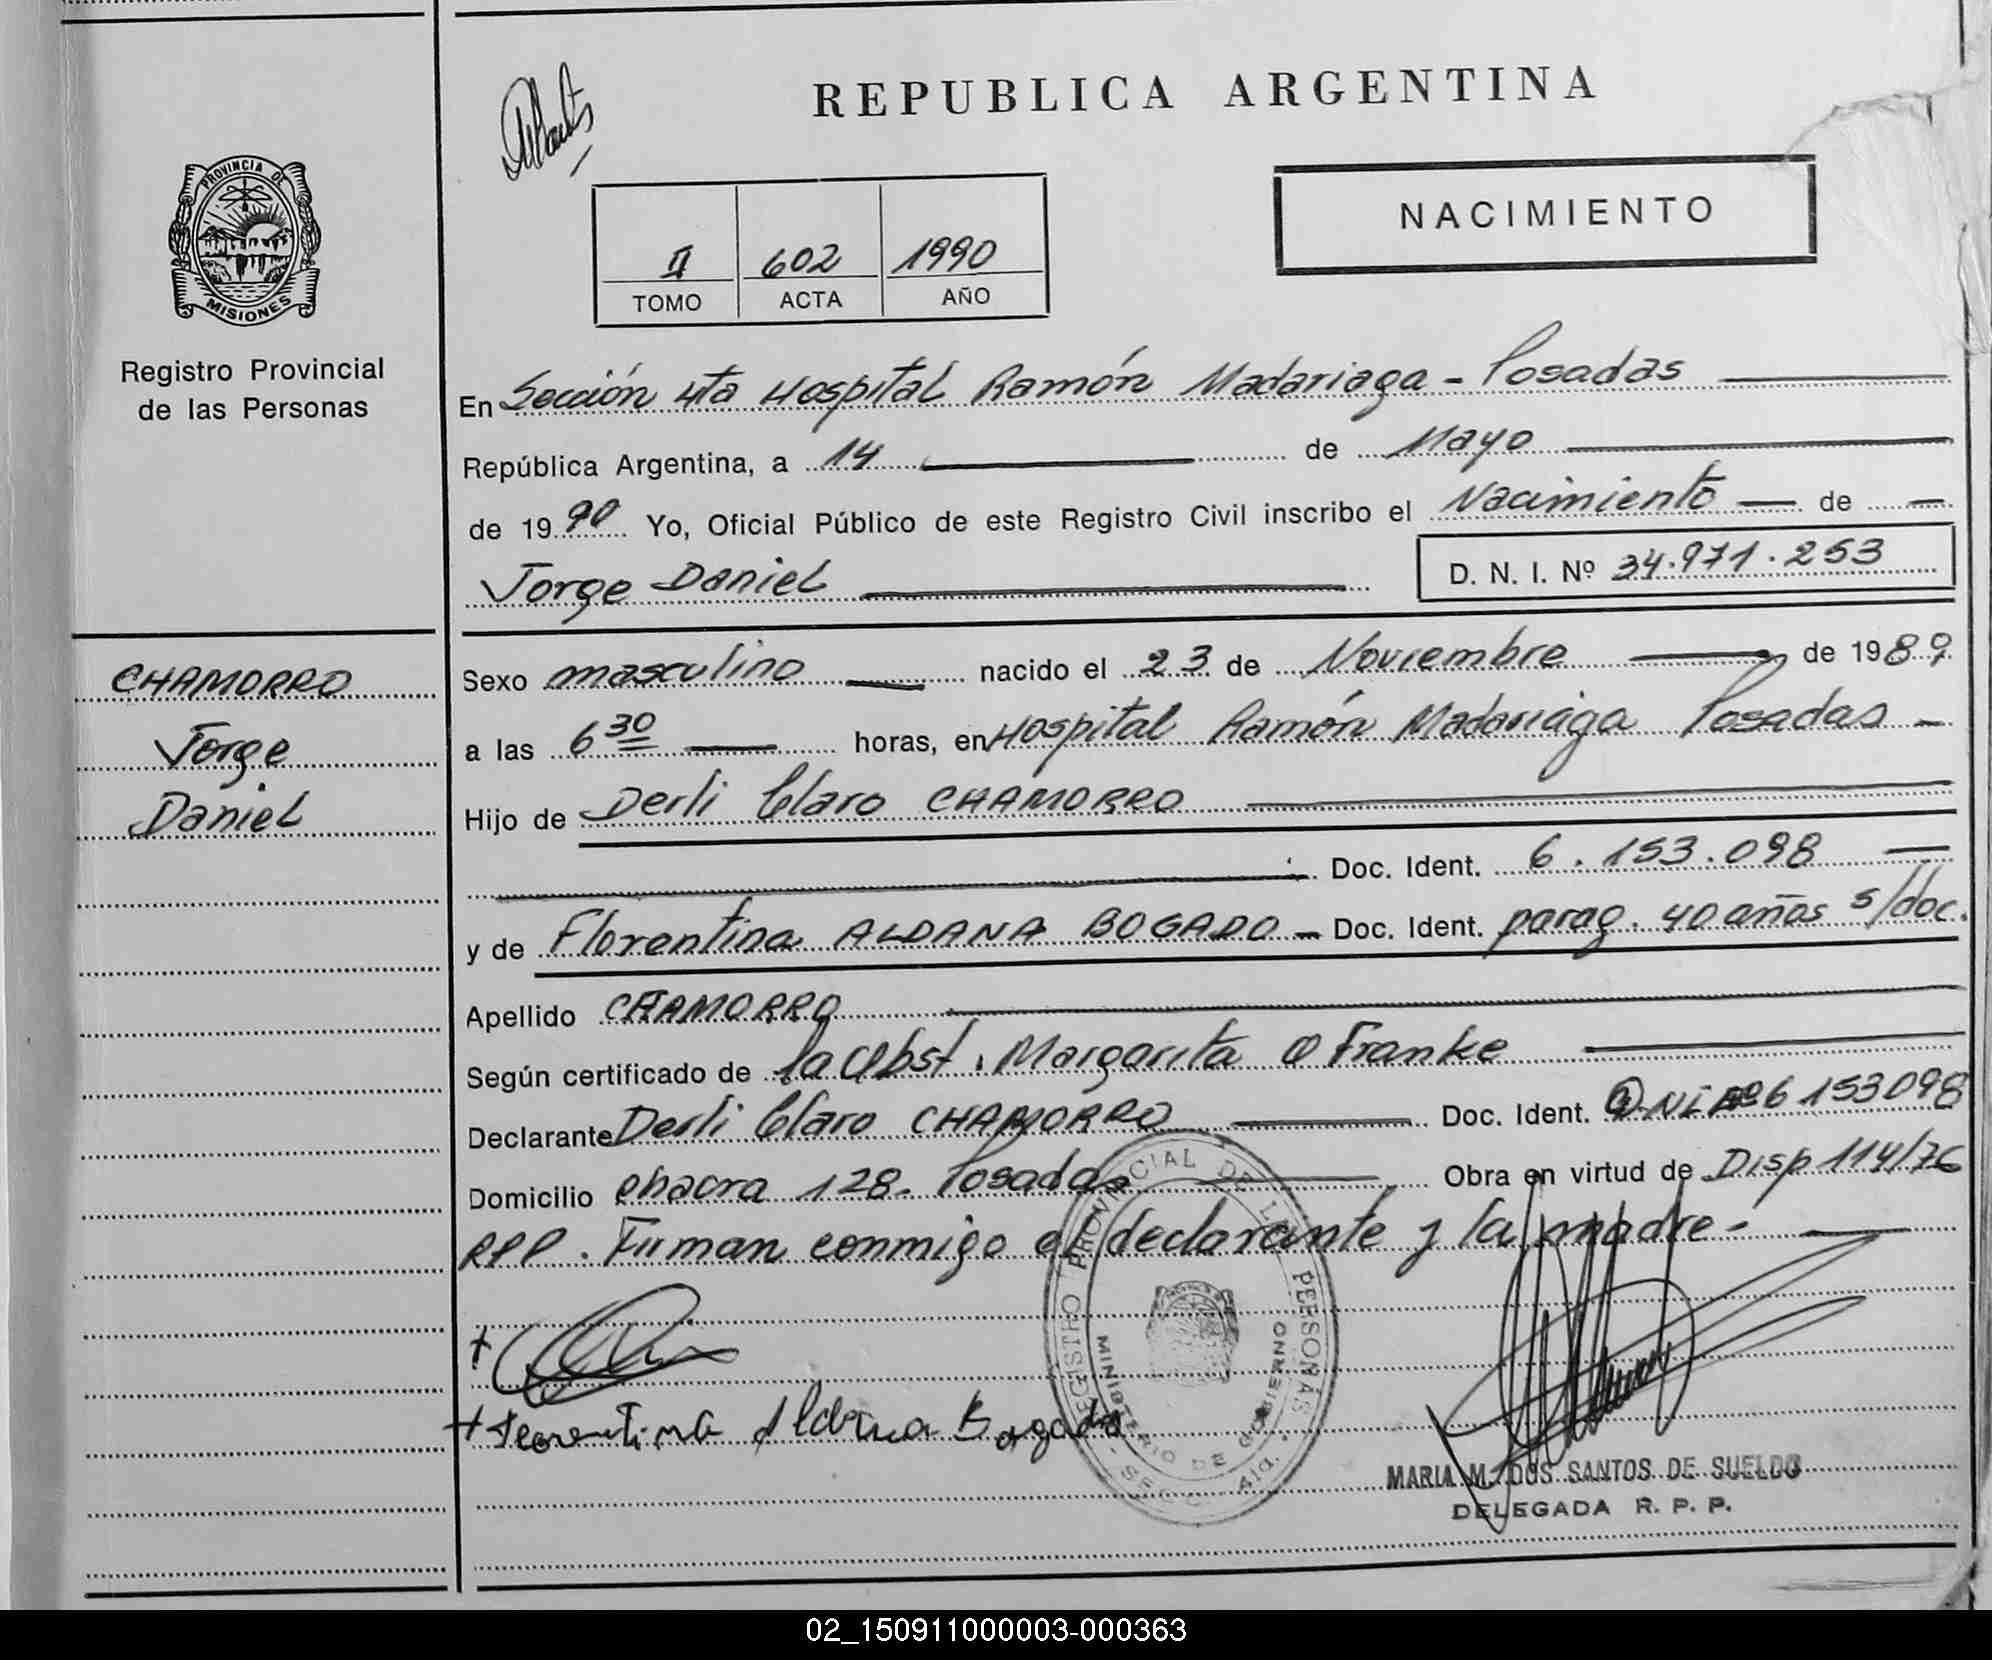 REPUBLICA ARGENTINA
NACIMIENTO
II 602 1990
TOMO ACTA AÑO
PROVINCIA DE
MISIONES
Registro Provincial
de las Personas
CHAMORRO
Jorge
Daniel
En Sección 4ta Hospital Ramón Madariaga - Posadas
República Argentina, a 14 de Mayo
de 1990 Yo, Oficial Público de este Registro Civil inscribo el Nacimiento — de —
Jorge Daniel D. N. I. Nº 34.971.253
Sexo masculino nacido el 23 de Noviembre de 1989
a las 6 30 horas, en Hospital Ramón Madariaga Posadas -
Hijo de Derli Claro CHAMORRO
Doc. Ident. 6.153.098
y de Florentina ALDANA BOGADO - Doc. Ident. parag. 40 años s/doc.
Apellido CHAMORRO
Según certificado de la Obst. Margarita O Franke
Declarante Derli Claro CHAMORRO Doc. Ident. DNI Nº 6153098
Domicilio chacra 128. Posadas Obra en virtud de Disp 114/76
RPP. Firman conmigo el declarante y la madre -
Florentina Aldana Bogado
REGISTRO PROVINCIAL DE LAS PERSONAS
MINISTERIO DE GOBIERNO
MARIA M. DOS SANTOS DE SUELDO
DELEGADA R. P. P.
02_150911000003-000363